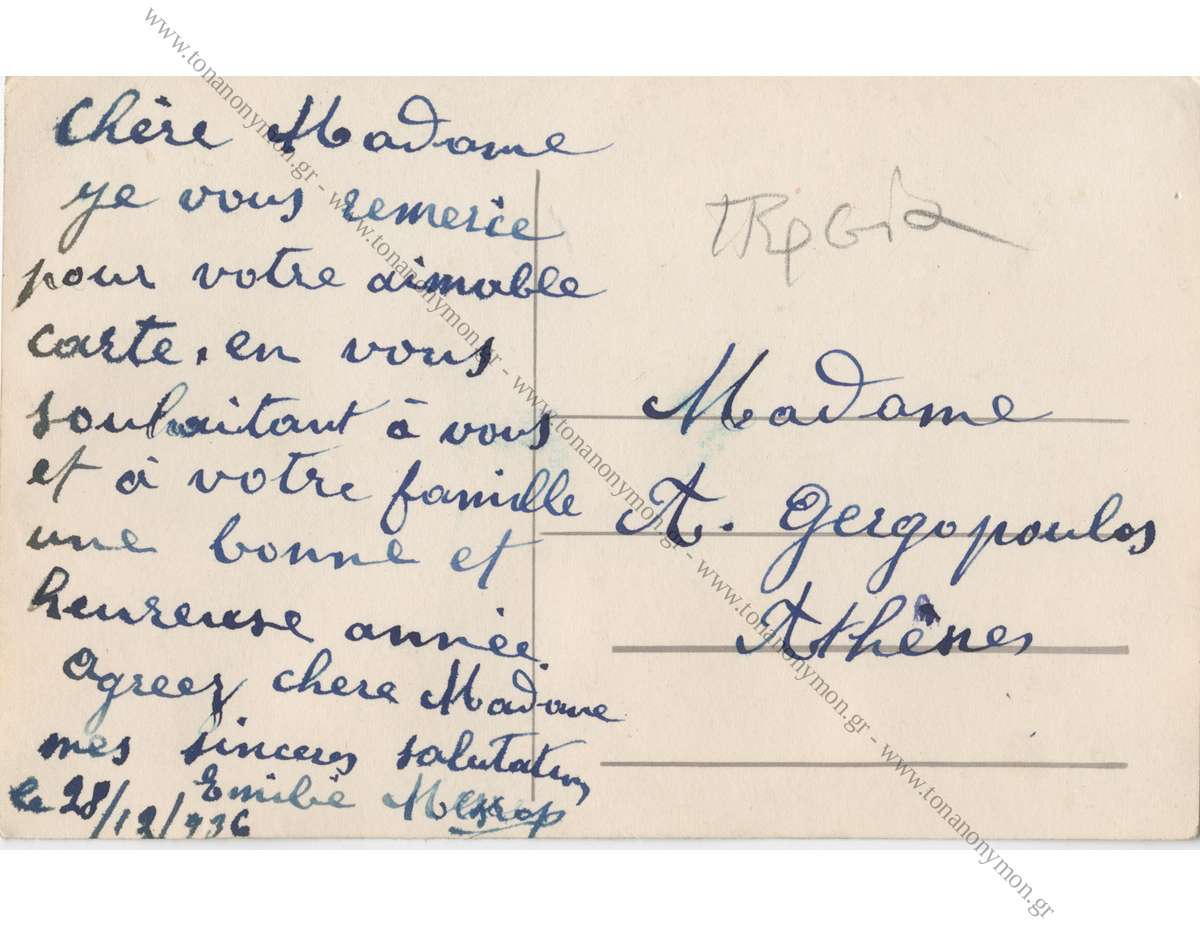 Chère Madame
je vous remercie
pour votre aimable
carte, en vous
souhaitant à vous
et à votre famille
une bonne et
heureuse année.
Agreez chere Madame
mes sinceres salutations
Emilie
le 28/12/936
Madame
A. Gergopoulos
Athènes
www.tonanonymon.gr - www.tonanonymon.gr - www.tonanonymon.gr - www.tonanonymon.gr - www.tonanonymon.gr